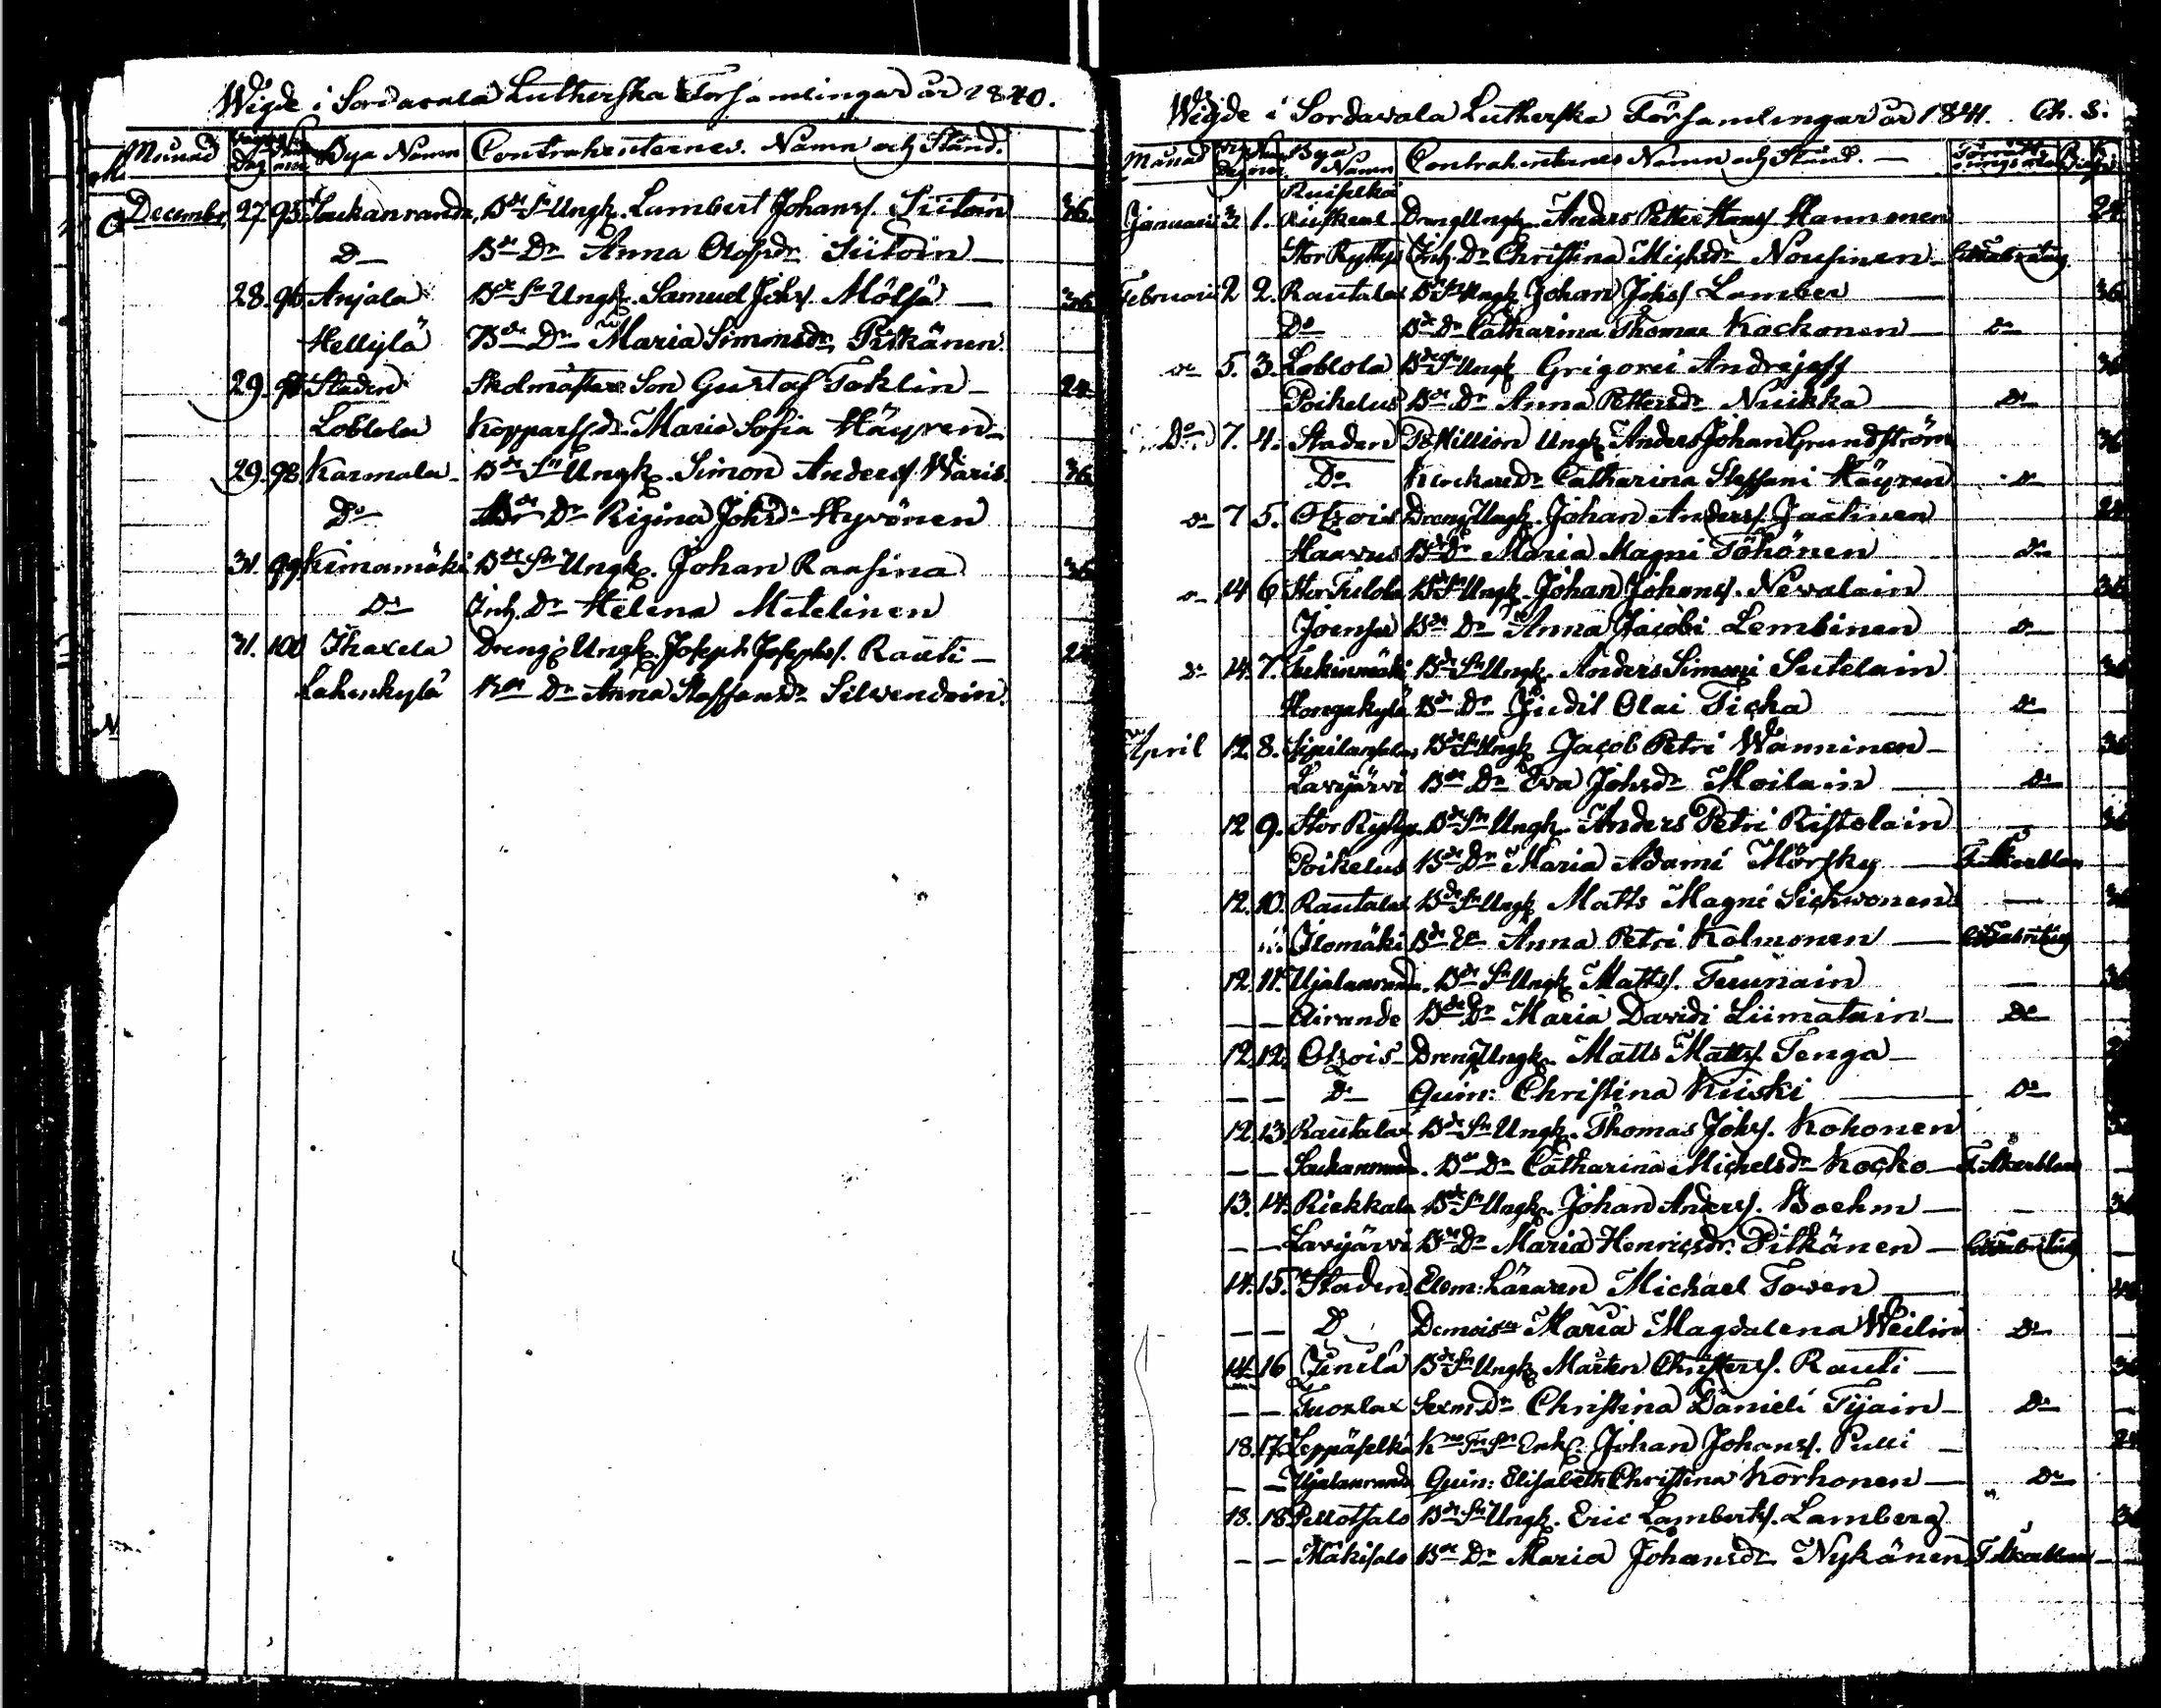 Wigde i Sordavala Lutherska Församlingar år 1840.
Månad Dag Bya Namn Contrahenternes Namn och Stånd.
December 27. 95 Soukanranda, Bde Sn Ungk. Lambert Johanss. Siitoin 36
D— Bde Dr Anna Olofsdr Siitoin
28. 96 Anjala Bde Sn Ungk. Samuel Johs. Mölsä 36
Hellylä Bde Dr Maria Simonsdr Pitkänen
29. 97 Staden Skolmästare Son Gustaf Toklin 24
Loblola Kopparsl. dr Maria Sofia Häyren
29. 98 Karmala Bde Sn Ungk. Simon Anderss. Waris 36
Do Bde Dr Rigina Johsdr Hyvönen
31. 99 Kimamäki Bde Sn Ungk. Johan Raasina 36
Do Inh. Dr Helena Metelinen
31. 100 Ihaxela Dreng Ungk. Joseph Josephss. Rauti 24
Lahenkylä Bde Dr Anna Staffansdr Silvendoin.
Wigde i Sordavala Lutherska Församlingar år 1841. Ch. S.
Månad Bya Namn Contrahenternes Namn och Stånd.
Januari 3 1. Ruiskeal Dreng Ungk. Anders Petter Hanss. Hannonen 24
Stor Ryttys Inh. Dr Christina Michsdr Nousinen
Februari 2 2. Rautalax Bde Sn Ungk. Johan Johss. Lamber 36
Do Bde Dr Catharina Thomae Kockonen Do
Do 5. 3. Loblola Bde Sn Ungk. Grigorei Andrejeff 36
Poikelus Bde Dr Anna Pettersdr Nuikka Do
Do 7. 4. Staden Ungk. Anders Johan Grundström 36
Do Dr Catharina Steffani Häyren Do
Do 7 5. Otsois Dreng Ungk. Johan Anderss. Jaatinen 24
Haavus Bde Dr Maria Magni Töhönen Do
Do 14 6 Stor Tulola Bde Sn Ungk. Johan Johanss. Nevalain 36
Joensu Bde Dr Anna Jacobi Lembinen Do
Do 14. 7. Tuokinmäki Bde Sn Ungk. Anders Simoni Sutelain 36
Hongakylä Bde Dr Judit Olai Ticka Do
April 12. 8. Bde Sn Ungk. Jacob Petri Wänninen 36
Lavijärvi Bde Dr Eva Johsdr Moilain Do
12 9. Stor Ryttys Bde Sn Ungk. Anders Petri Ristolain 36
Poikelus Bde Dr Maria Adami Mörsky F. Åkerblom
12. 10. Rautalax Bde Sn Ungk. Matts Magni Sichvonen 36
Ilomäki Bde Anna Petri Kolmonen
12. 11. Ujalanranda. Bde Sn Ungk. Matts. Teuunain 36
— — Airande Bde Dr Maria Davidi Liimatain Do
12. 12. Otsois Dreng Ungk. Matts Mattss. Tenga
— — Do Quin: Christina Kiiski Do
12 13 Rautalax Bde Sn Ungk. Thomas Johs. Kohonen 36
— — Soukanrand. Bde Dr Catharina Michelsdr Kocko F. Åkerblom
13. 14. Riekkala Bde Sn Ungk. Johan Anderss. Boehm 36
— — Lavijärvi Bde Dr Maria Henricsdr. Pitkänen
14. 15. Staden Elem: Läraren Michael Toven
— — D Demoiselle Maria Magdalena Weilin Do
14 16 Junula Bde Sn Ungk. Mårten Christerss. Rauti 36
— — Tuoxlax Dr Christina Danieli Tijain Do
18. 17. Leppäselkä Enk. Johan Johanss. Pulli 24
— — Ujalanranda Quin: Elisabeth Christina Korhonen Do
18. 18 Pellotsalo Bde Sn Ungk. Eric Lamberts. Lamberg 36
— — Mäkisalo Bde Dr Maria Johansdr Nykänen F. Åkerblom